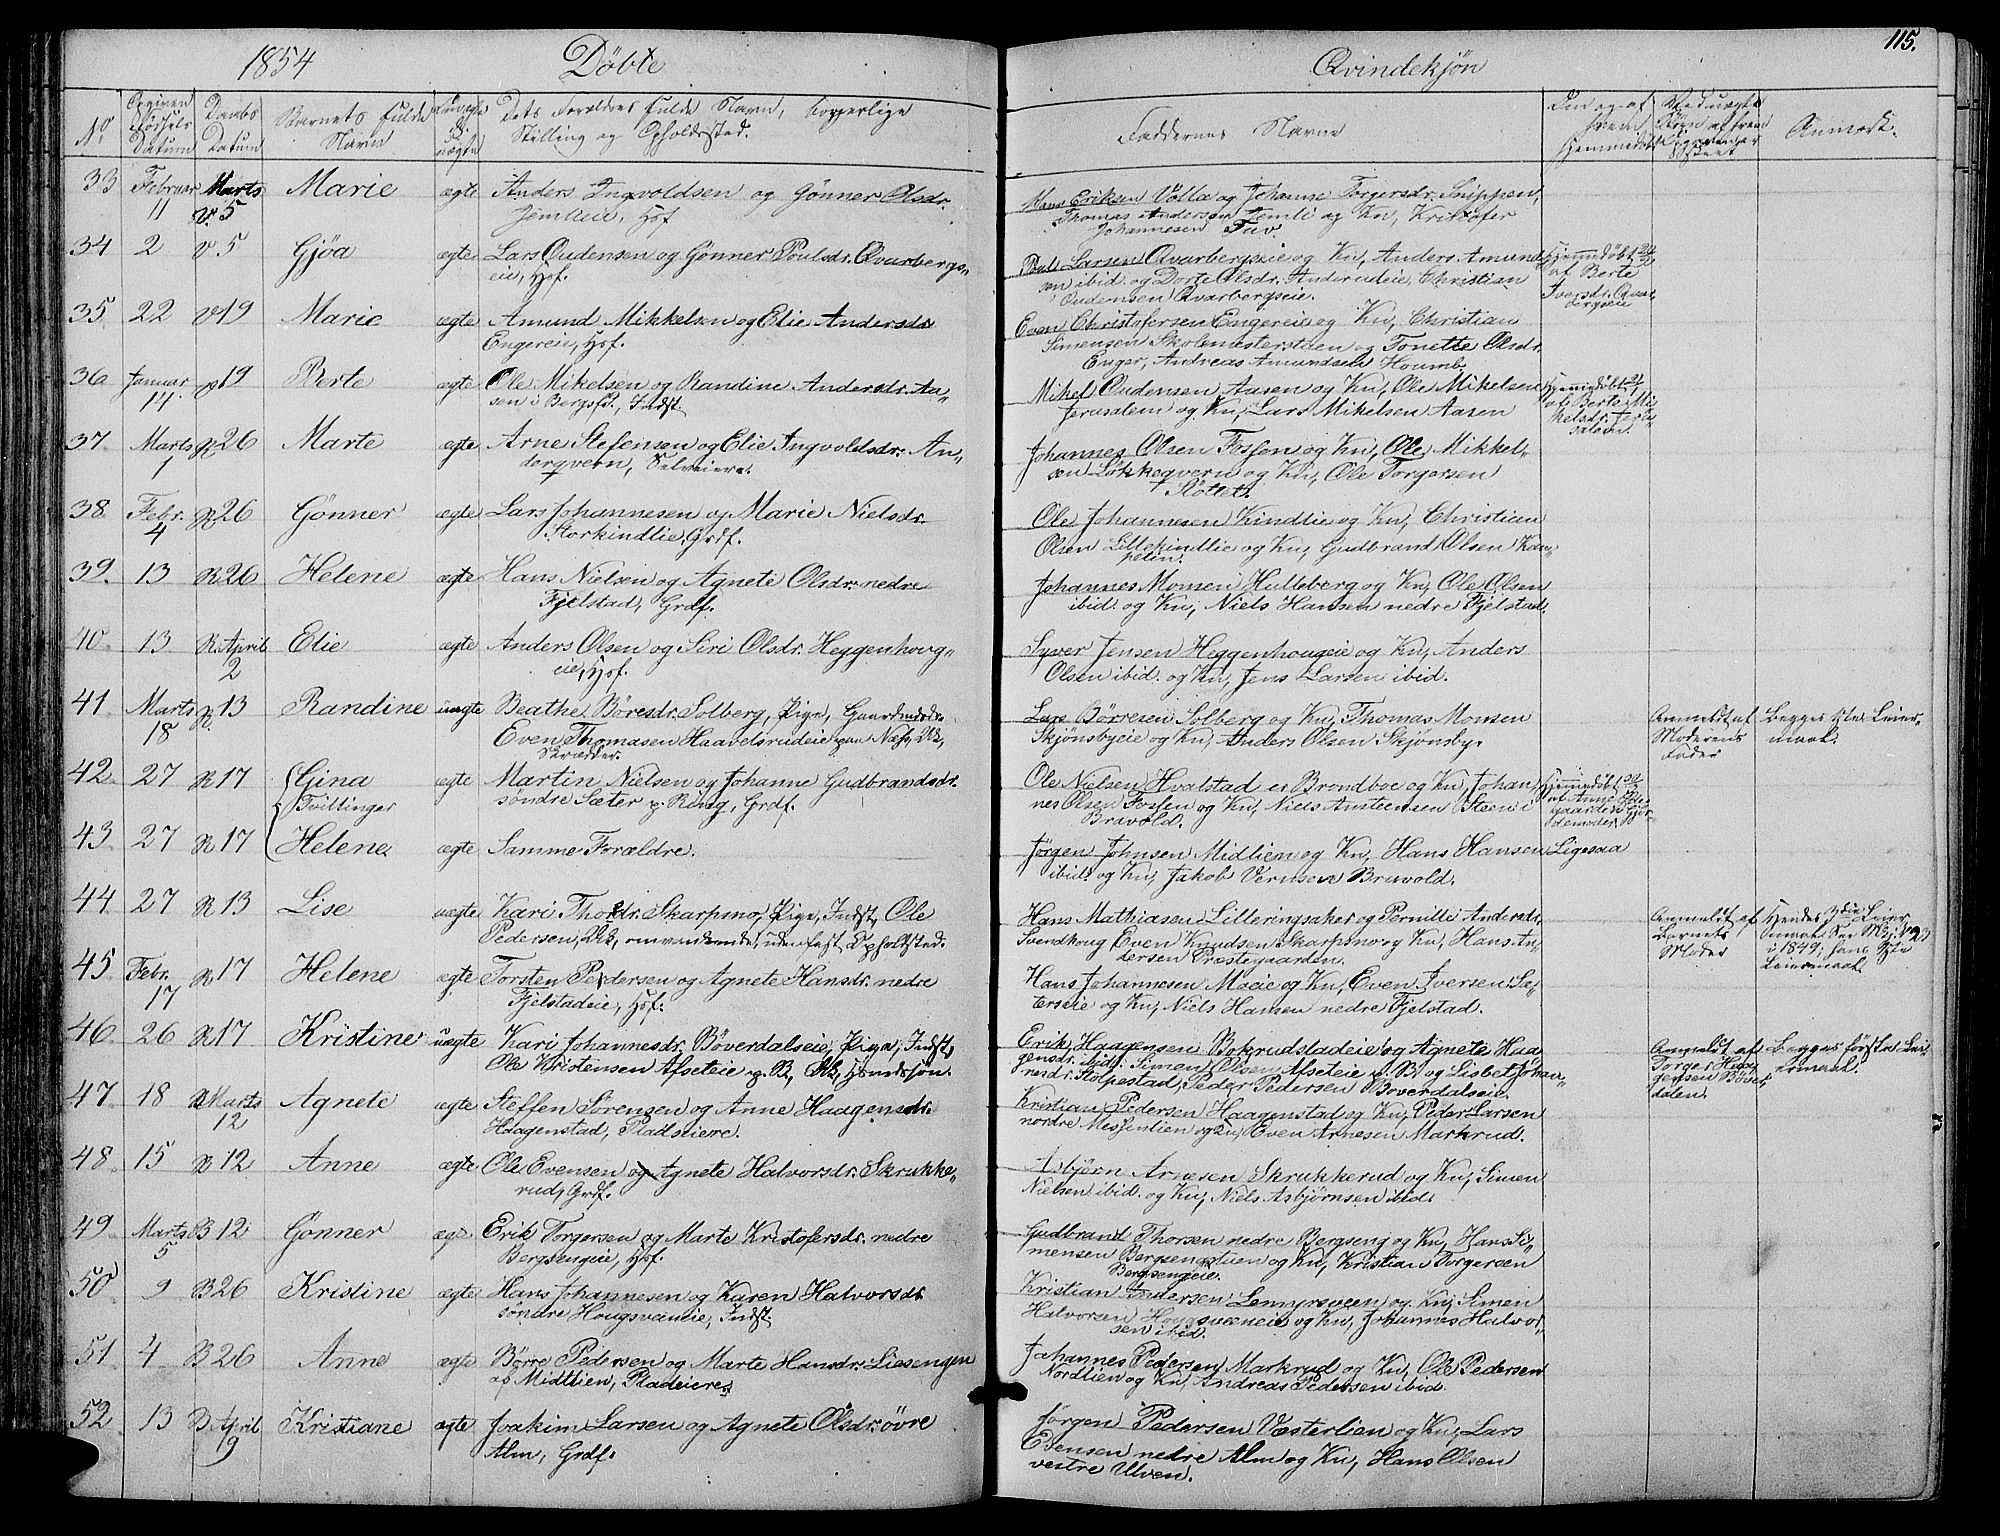 1854 Döbte
Qvindekjön 115.
No Datum Daabs Datum Barnets fulde Navn Dets Forældres fulde Navn, borgerlige Stilling og Opholdssted.
Faddernes Navne Anmærk.
33 Februar 11 Marts V. 5 Marie ægte Anders Ingvoldsen og Gönner Olsdr.
Jemlieie, Hsf
Hans Eriksen Volla og Johanne Torgersdr. Snippen,
Thomas Andersen Jemli og Kn, Kristofer
Johannesen Tuv.
34 2 V 5 Gjöa ægte Lars Oudensen og Gönner Poulsdr. Qvarbergs-
eie, Hsf.
Poul Larsen Qvarbergseie og Kn, Anders Amund-
sen ibid. og Dorte Olsdr. Anderudeie, Christian
Oudensen Qvarbergseie.
Hjemmedöbt
af Berte
Iversdr. Qvar-
bergseie
35 22 V 19 Marie ægte Amund Mikkelsen og Elie Andersdr.
Engereie, Hsf.
Even Christofersen Engereie og Kn, Christian
Simensen Skolemesterstuen og Tonette Olsdr.
Enger, Andreas Amundsen Houmb.
36 Januar 14 V 19 Berte ægte Ole Mikelsen og Randine Andersdr. Aa-
sen i Bergsfd., Indst.
Mikel Oudensen Aasen og Kn, Ole Mikelsen
Jerusalem og Kn, Lars Mikelsen Aasen
Hjemmedöbt
af Berte Mi-
kelsdr. Jeru-
salem.
37. Marts 1 R 26 Marte ægte Arne Stefensen og Elie Ingvoldsdr. An-
dorqvern, Selveiere.
Johannes Olsen Fossen og Kn, Ole Mikkel-
sen Lökkeqvern og Kn, Ole Torgersen
Slottet.
38 Febr. 4 R 26 Gönner ægte Lars Johannesen og Marie Nielsdr.
Storkindlie, Grdf.
Ole Johannesen Kindlie og Kn, Christian
Olsen Lillekindlie og Kn, Gudbrand Olsen Kam-
petin.
39. 13 R 26 Helene ægte Hans Nielsen og Agnete Olsdr. nedre
Fjelstad, Grdf.
Johannes Monsen Hulleberg og Kn, Ole Olsen
ibid. og Kn, Niels Hansen nedre Fjelstad.
40. 13 R. April 2 Elie ægte Anders Olsen og Siri Olsdr. Heggenhoug-
eie, Hsf.
Syver Jensen Heggenhougeie og Kn, Anders
Olsen ibid. og Kn, Jens Larsen ibid.
41 Marts 18 R. 13 Randine uægte Beathe Börresdr. Solberg, Pige,
Even Thomasen Haavelsrudeie paa Næs, Uk,
Skrædder.
Lars Börresen Solberg og Kn, Thomas Monsen
Skjönsbyeie og Kn, Anders Olsen Skjönsby.
Anmeldt af
Moderens
Fader
Begges 1ste Leier-
maal.
42 27 R 17 Gina ægte Martin Nielsen og Johanne Gudbrandsdr.
Tvillinger söndre Sæter p. Ring, Grdf.
Ole Nielsen Hvalstad er Brondboe og Kn, Johan-
nes Olsen Fossen og Kn, Niels Ansteensen Steen i
Bruvold.
Hjemmedöbt
af Anne
43 27 R 17 Helene ægte Samme Forældre.
Jörgen Johnsen Midlien og Kn, Hans Hansen Ligesaa
ibid. og Kn, Jakob Vernsen Bruvold.
44 27 R 13 Lise uægte Kari Thordr. Skarpsno, Pige, Indst, Ole
Pedersen, Uk, omvankende, uden fast Opholdsted.
Hans Mathiasen Lilleringsaker og Pernille Andersdr.
Svendhoug Even Knudsen Skarpsno og Kn, Hans An-
dersen Præstegaarden.
Anmeldt af
Barnets
Moder
Hendes 3die Leier-
maal See No 23
i 1849, hans 1ste
Leiermaal
45 Febr. 17 R 17 Helene ægte Torsten Pedersen og Agnete Hansdr. nedre
Fjelstadeie, Hsf.
Hans Johannesen Moeie og Kn, Even Iversen Sæ-
terseie og Kn, Niels Hansen nedre Fjelstad.
46 26 R 17 Kristine uægte Kari Johannesdr. Böverdalseie, Pige, Indst,
Ole Kristensen Afseteie p. B, Uk, Huusmdssön.
Erik Haagensen Bokrudstadeie og Agnete Haa-
gensdr. ibid. Simen Olsen Afseteie p. B. og Lisbet Johan-
nesdr. Stolpestad, Peder Pedersen Böverdalseie.
Anmeldt af
Torger Haa-
gensen Böver-
dalen.
Begges förste Lei-
ermaal.
47 18 B Marts 12 Agnete ægte Steffen Sörensen og Anne Haagensdr.
Haagenstad, Pladseiere.
Kristian Pedersen Haagenstad og Kn, Peder Larsen
nordre Messenlien og Kn, Even Arnesen Markrud.
48 15 B 12 Anne ægte Ole Evensen og Agnete Halvorsdr. Skrukke-
rud, Grdf.
Asbjörn Arnesen Skrukkerud og Kn, Simen
Nielsen ibid. og Kn, Niels Asbjörnsen ibid.
49 Marts 5 B 12 Gönner ægte Erik Torgersen og Marte Kristofersdr. nedre
Bergsengeie, Hsf.
Gudbrand Thorsen nedre Bergseng og Kn, Hans Si-
mensen Bergsengstuen og Kn, Kristian Torgersen
Bergsengeie.
50 9 B 26 Kristine ægte Hans Johannesen og Karen Halvorsdr.
söndre Hougsveneie, Indst
Kristian Andersen Lemyrsveen og Kn, Simen
Halvorsen Hougsveneie og Kn, Johannes Halvor-
sen ibid.
51 4 B 26 Anne ægte Börre Pedersen og Marte Hansdr. Liesengen
af Midtlien, Pladseiere
Johannes Pedersen Markrud og Kn, Ole Pedersen
Nordlien og Kn, Andreas Pedersen ibid.
52 13 B. April 9 Kristiane ægte Joakim Larsen og Agnete Olsdr. övre
Alm, Grdf.
Jörgen Pedersen Væsterlien og Kn, Lars
Evensen nedre Alm og Kn, Hans Olsen
vestre Ulven.